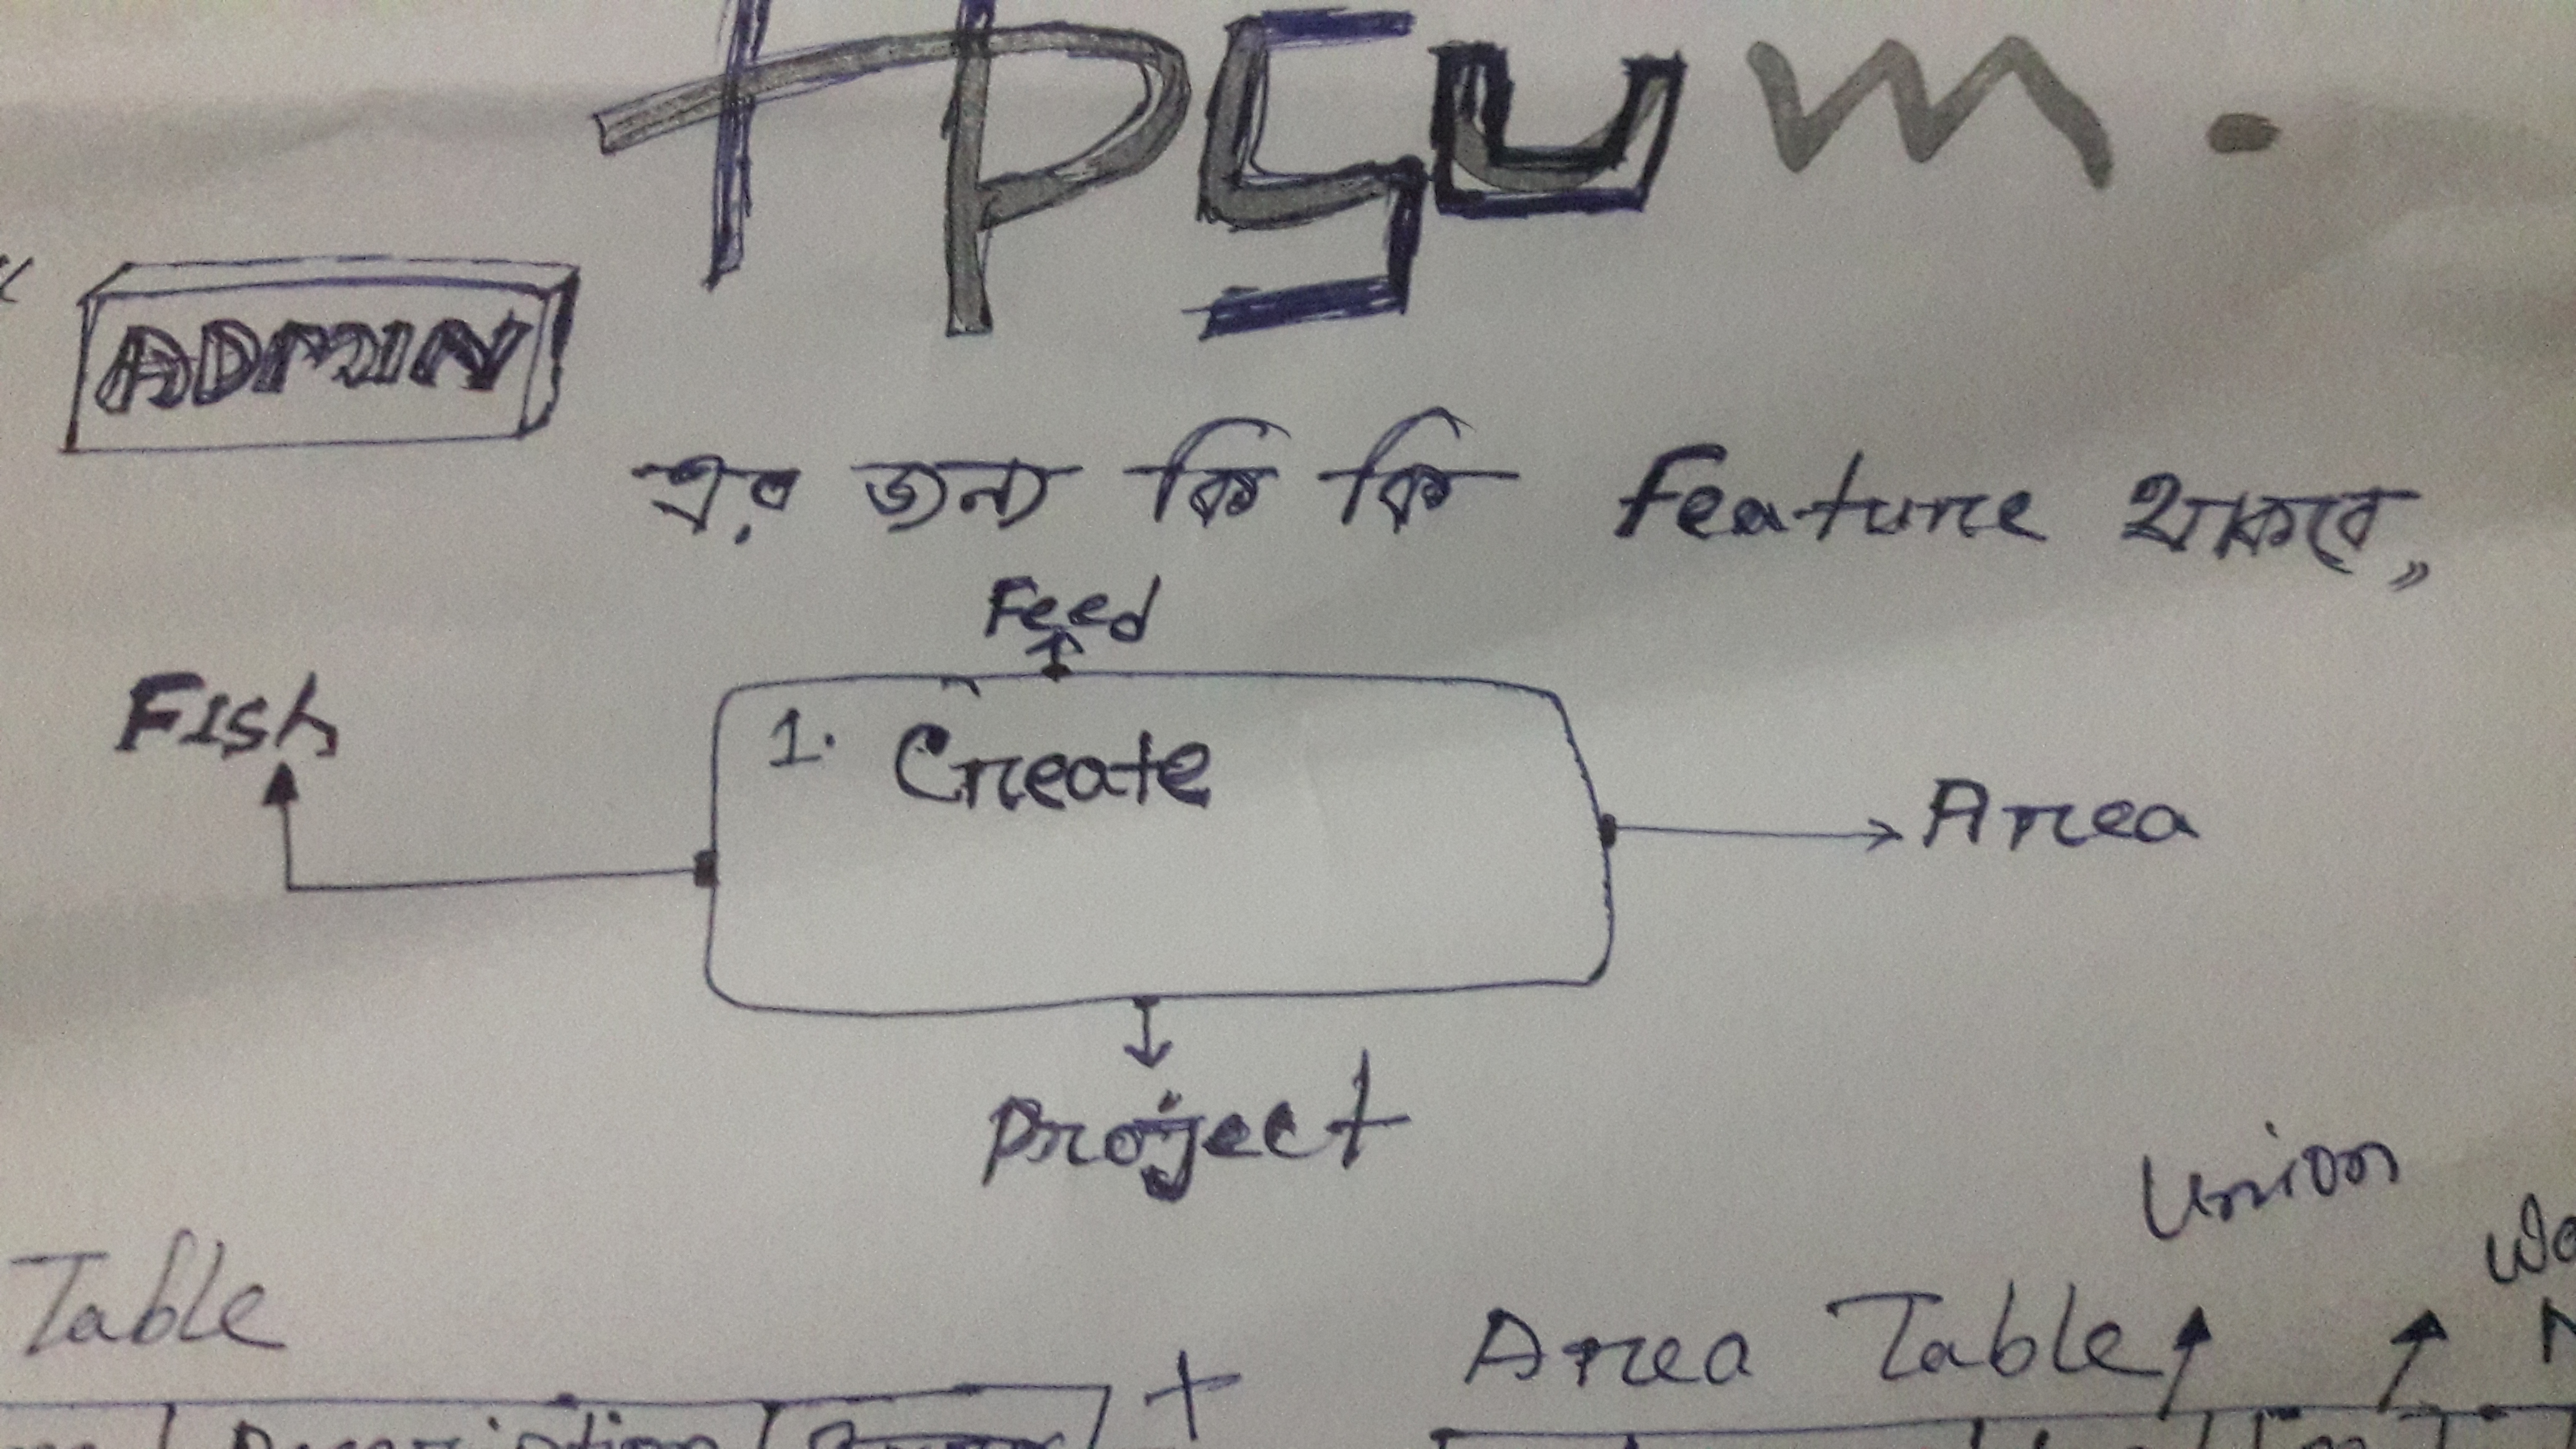 IPSUM.
ADMIN
এর জন্য কি কি feature থাকবে,,
Feed
Fish
1. Create
Area
Project
Union
Table
Area Table
+
Description